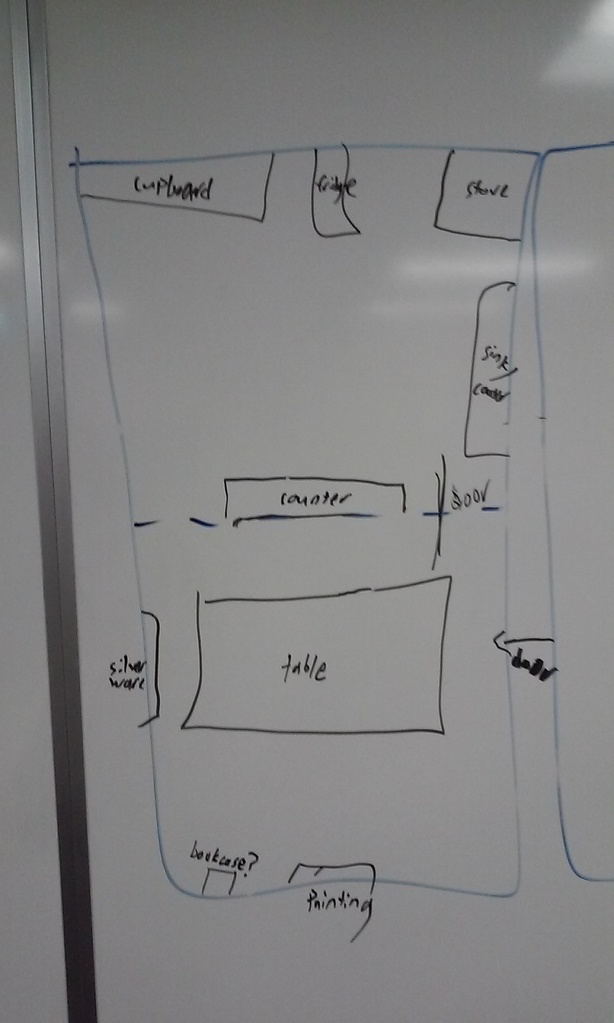 cupboard
fridge
stove
sink/
counter
counter
door
silver
ware
table
door
bookcase?
Painting